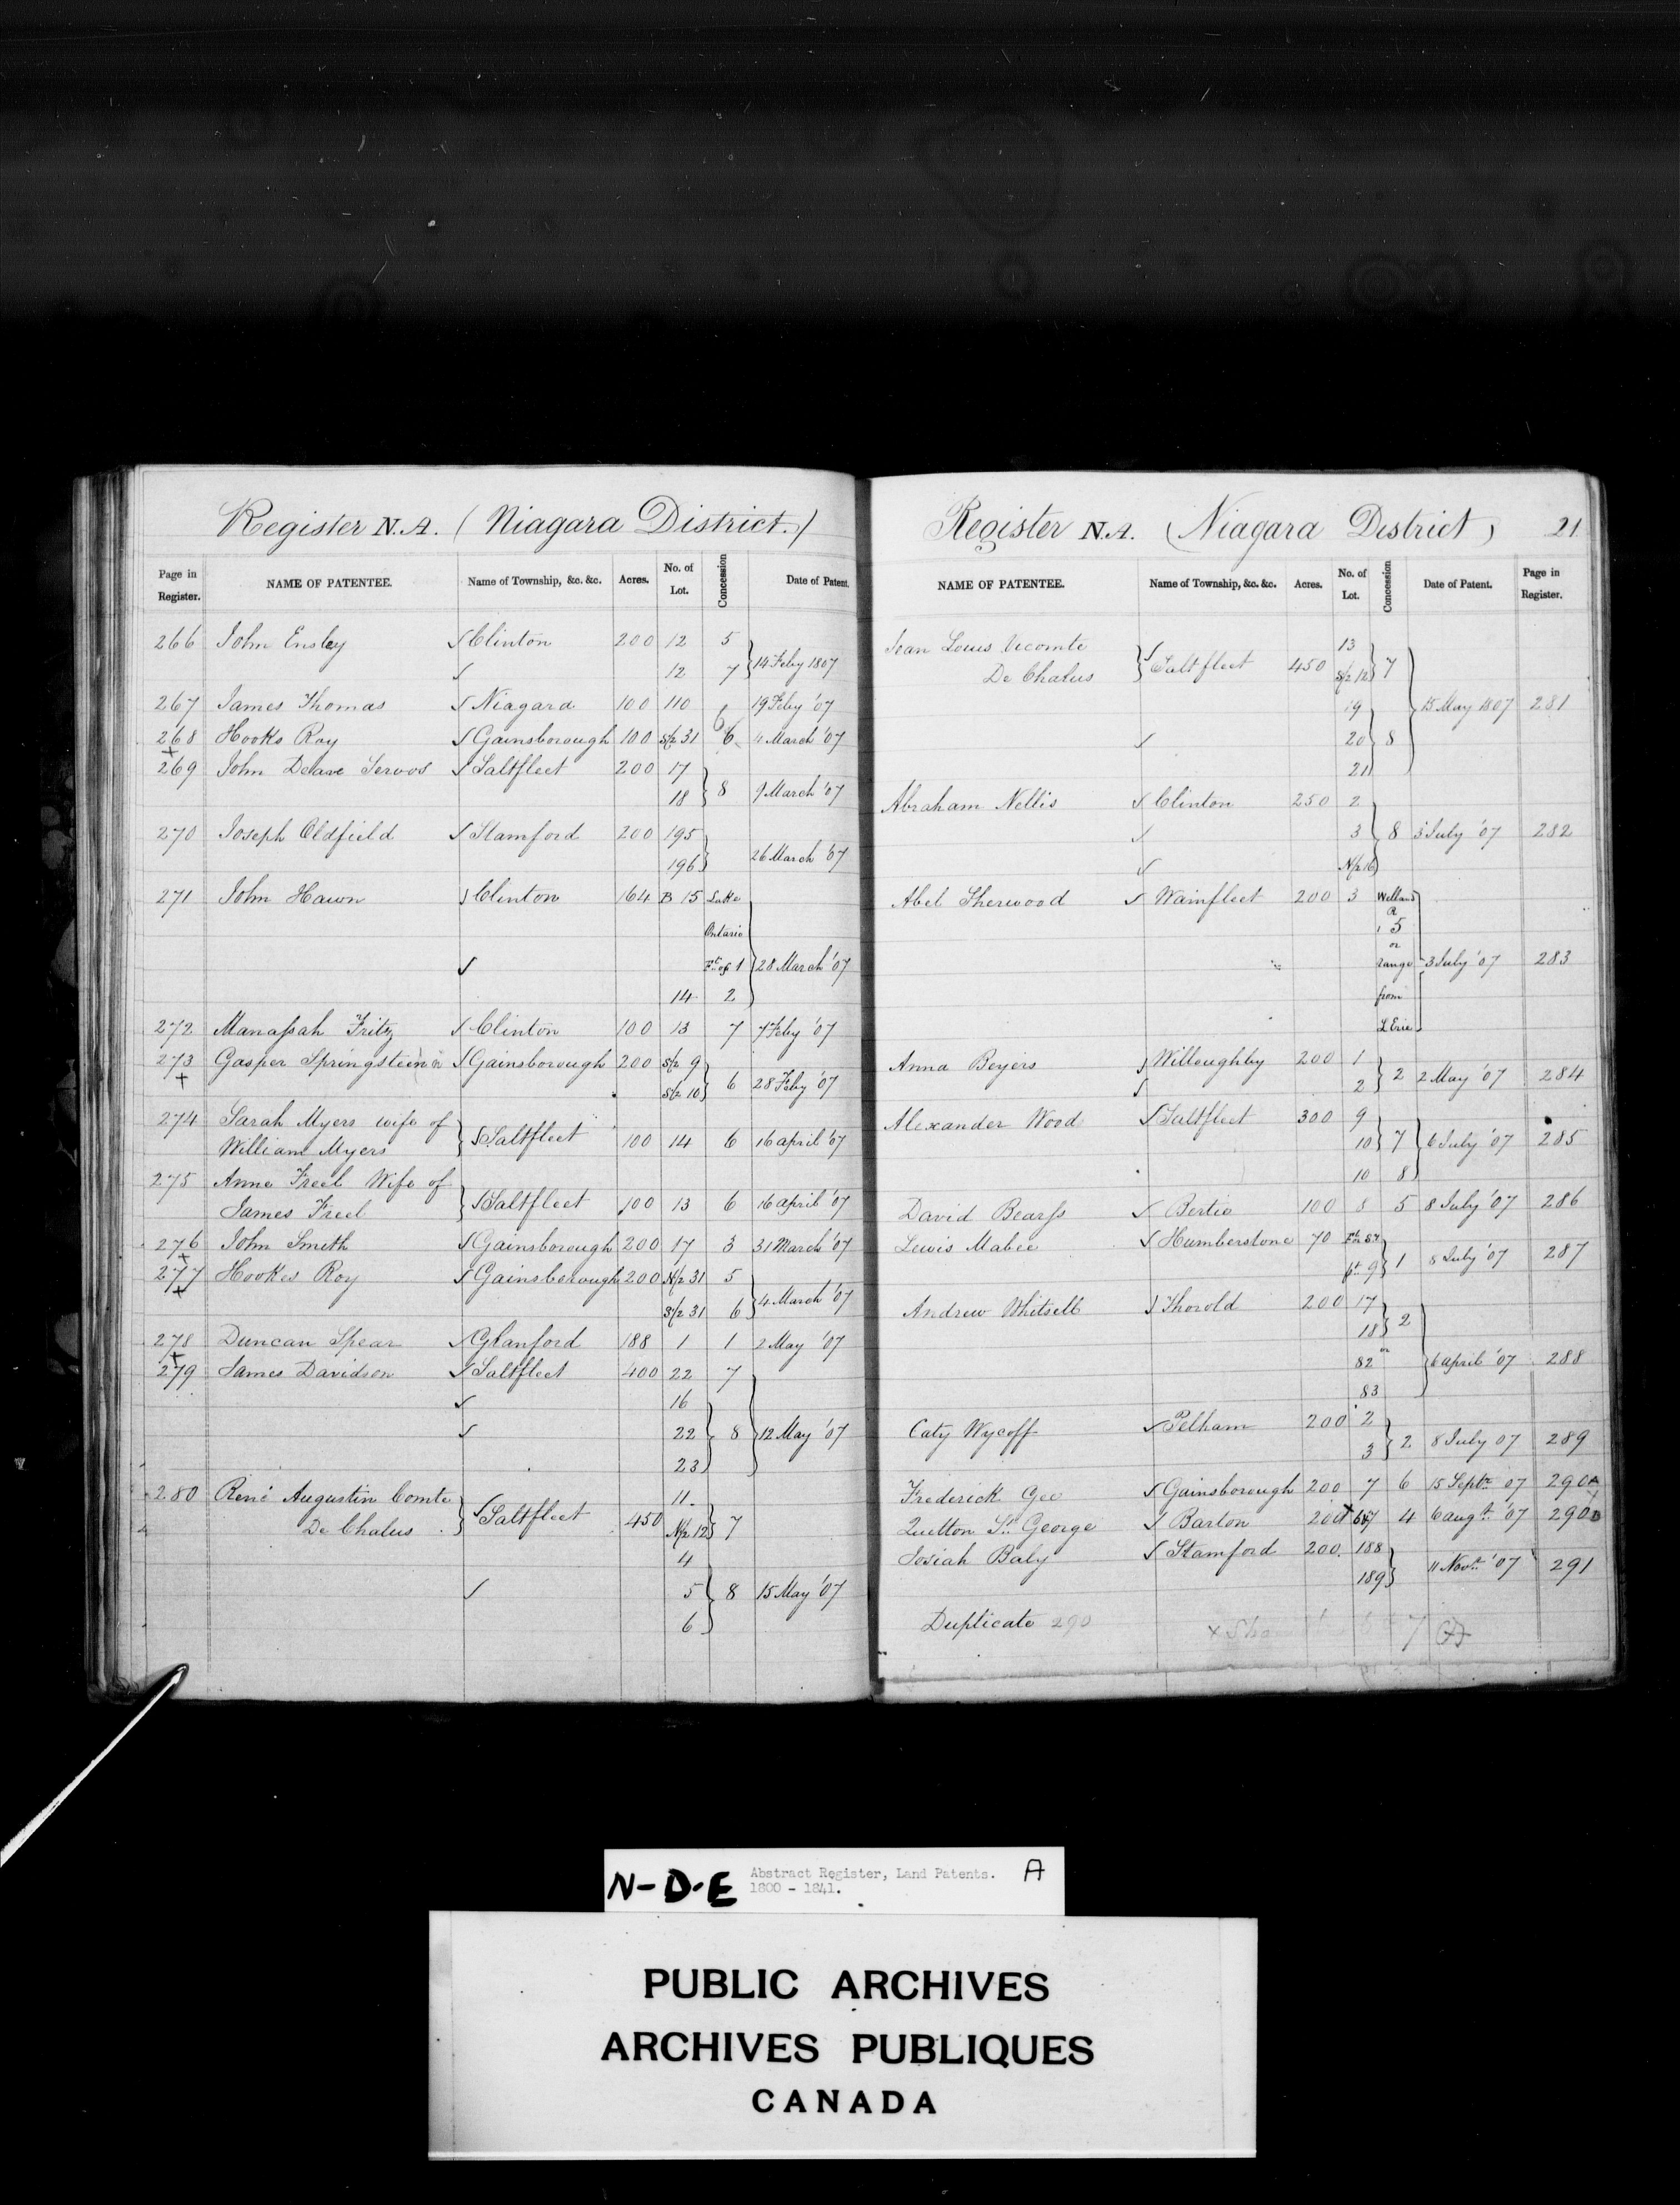 Register N.A. (Niagara District.)
Page in Register. NAME OF PATENTEE. Name of Township, &c. &c. Acres. No. of Lot. Concession Date of Patent.
266 John Ensley √ Clinton 200 12 5
√ 12 7 } 14 Feby 1807
267 James Thomas √ Niagara 100 110 19 Feby '07
268 Hooks Roy √ Gainsborough 100 S/2 31 6 4 March '07
+
269 John Servos √ Saltfleet 200 17
18 } 8 9 March '07
270 Joseph Oldfield √ Stamford 200 195
196 } 26 March '07
271 John Hawn √ Clinton 164 B 15 Lake
Ontario
√ Ft of 1 } 28 March '07
14 2
272 Manassah Fritz √ Clinton 100 13 7 7 Feby '07
273 Gasper Springsteen √ Gainsborough 200 S/2 9
+ S/2 10 } 6 28 Feby '07
274 Sarah Myers wife of
William Myers } √ Saltfleet 100 14 6 16 April '07
275 Anne Freel Wife of
James Freel } √ Saltfleet 100 13 6 16 April '07
276 John Smith √ Gainsborough 200 17 3 31 March '07
+
277 Hookes Roy √ Gainsborough 200 N/2 31 5
+ S/2 31 6 } 4 March '07
278 Duncan Spear √ Glanford 188 1 1 2 May '07
+
279 James Davidson √ Saltfleet 400 22 7
√ 16
√ 22 } 8 } 12 May '07
23
280 René Augustin Comte
De Chalus } √ Saltfleet 450 11
N/2 12 } 7
4
√ 5 } 8 15 May '07
6
Register N.A. (Niagara District) 21
NAME OF PATENTEE. Name of Township, &c. &c. Acres. No. of Lot. Concession Date of Patent. Page in Register.
Jean Louis Vicomte 13
De Chalus } √ Saltfleet 450 S/2 12 } 7
19 } 15 May 1807 281
√ 20 } 8
21
Abraham Nellis √ Clinton 250 2
√ 3 } 8 3 July '07 282
√ N/2 16
Abel Sherwood √ Wainfleet 200 3 Welland
R
5
or
range } 3 July '07 283
from
L Erie
Anna Beyers √ Willoughby 200 1
√ 2 } 2 2 May '07 284
Alexander Wood √ Saltfleet 300 9
10 } 7 } 6 July '07 285
10 8
David Bearss √ Bertie 100 8 5 8 July '07 286
Lewis Mabee √ Humberstone 70 Ft 8
pt 9 } 1 8 July '07 287
Andrew Whitsell √ Thorold 200 17
18 } 2
or
82 } 6 April '07 288
83
Caty Wycoff √ Pelham 200 2
3 } 2 8 July 07 289
Frederick Gee √ Gainsborough 200 7 6 15 Septr '07 290A
Quetton St George √ Barton 200 x 6&7 4 6 augt '07 290B
Josiah Baly √ Stamford 200 188
189 } 11 Novr '07 291
Duplicate 290
N-D-E Abstract Register, Land Patents. A
1800 - 1841.
PUBLIC ARCHIVES
ARCHIVES PUBLIQUES
CANADA